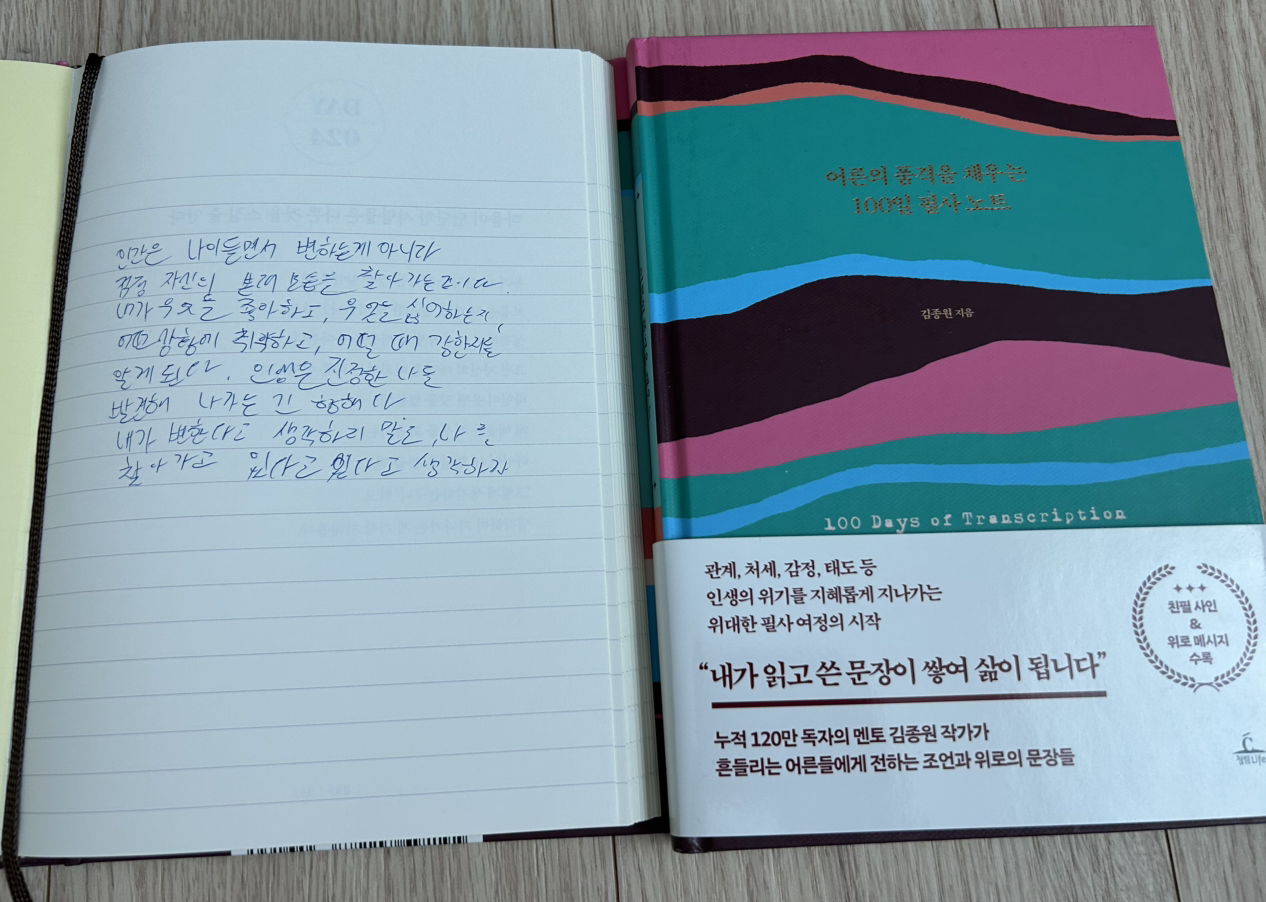 인간은 나이들면서 변하는게 아니라
점점 자신의 본래 모습을 찾아가는것이다.
내가 무엇을 좋아하고, 무엇을 싫어하는지,
어떤 상황에 취약하고, 어떨 때 강한지를
알게 된다. 인생은 진정한 나를
발견해 나가는 긴 항해다.
내가 변한다고 생각하지 말고, 나를
찾아가고 있다고 있다고 생각하자
어른의 품격을 채우는
100일 필사 노트
김종원 지음
100 Days of Transcription
관계, 처세, 감정, 태도 등
인생의 위기를 지혜롭게 지나가는
위대한 필사 여정의 시작
“내가 읽고 쓴 문장이 쌓여 삶이 됩니다”
누적 120만 독자의 멘토 김종원 작가가
흔들리는 어른들에게 전하는 조언과 위로의 문장들
친필 사인
&
위로 메시지
수록
청림Life